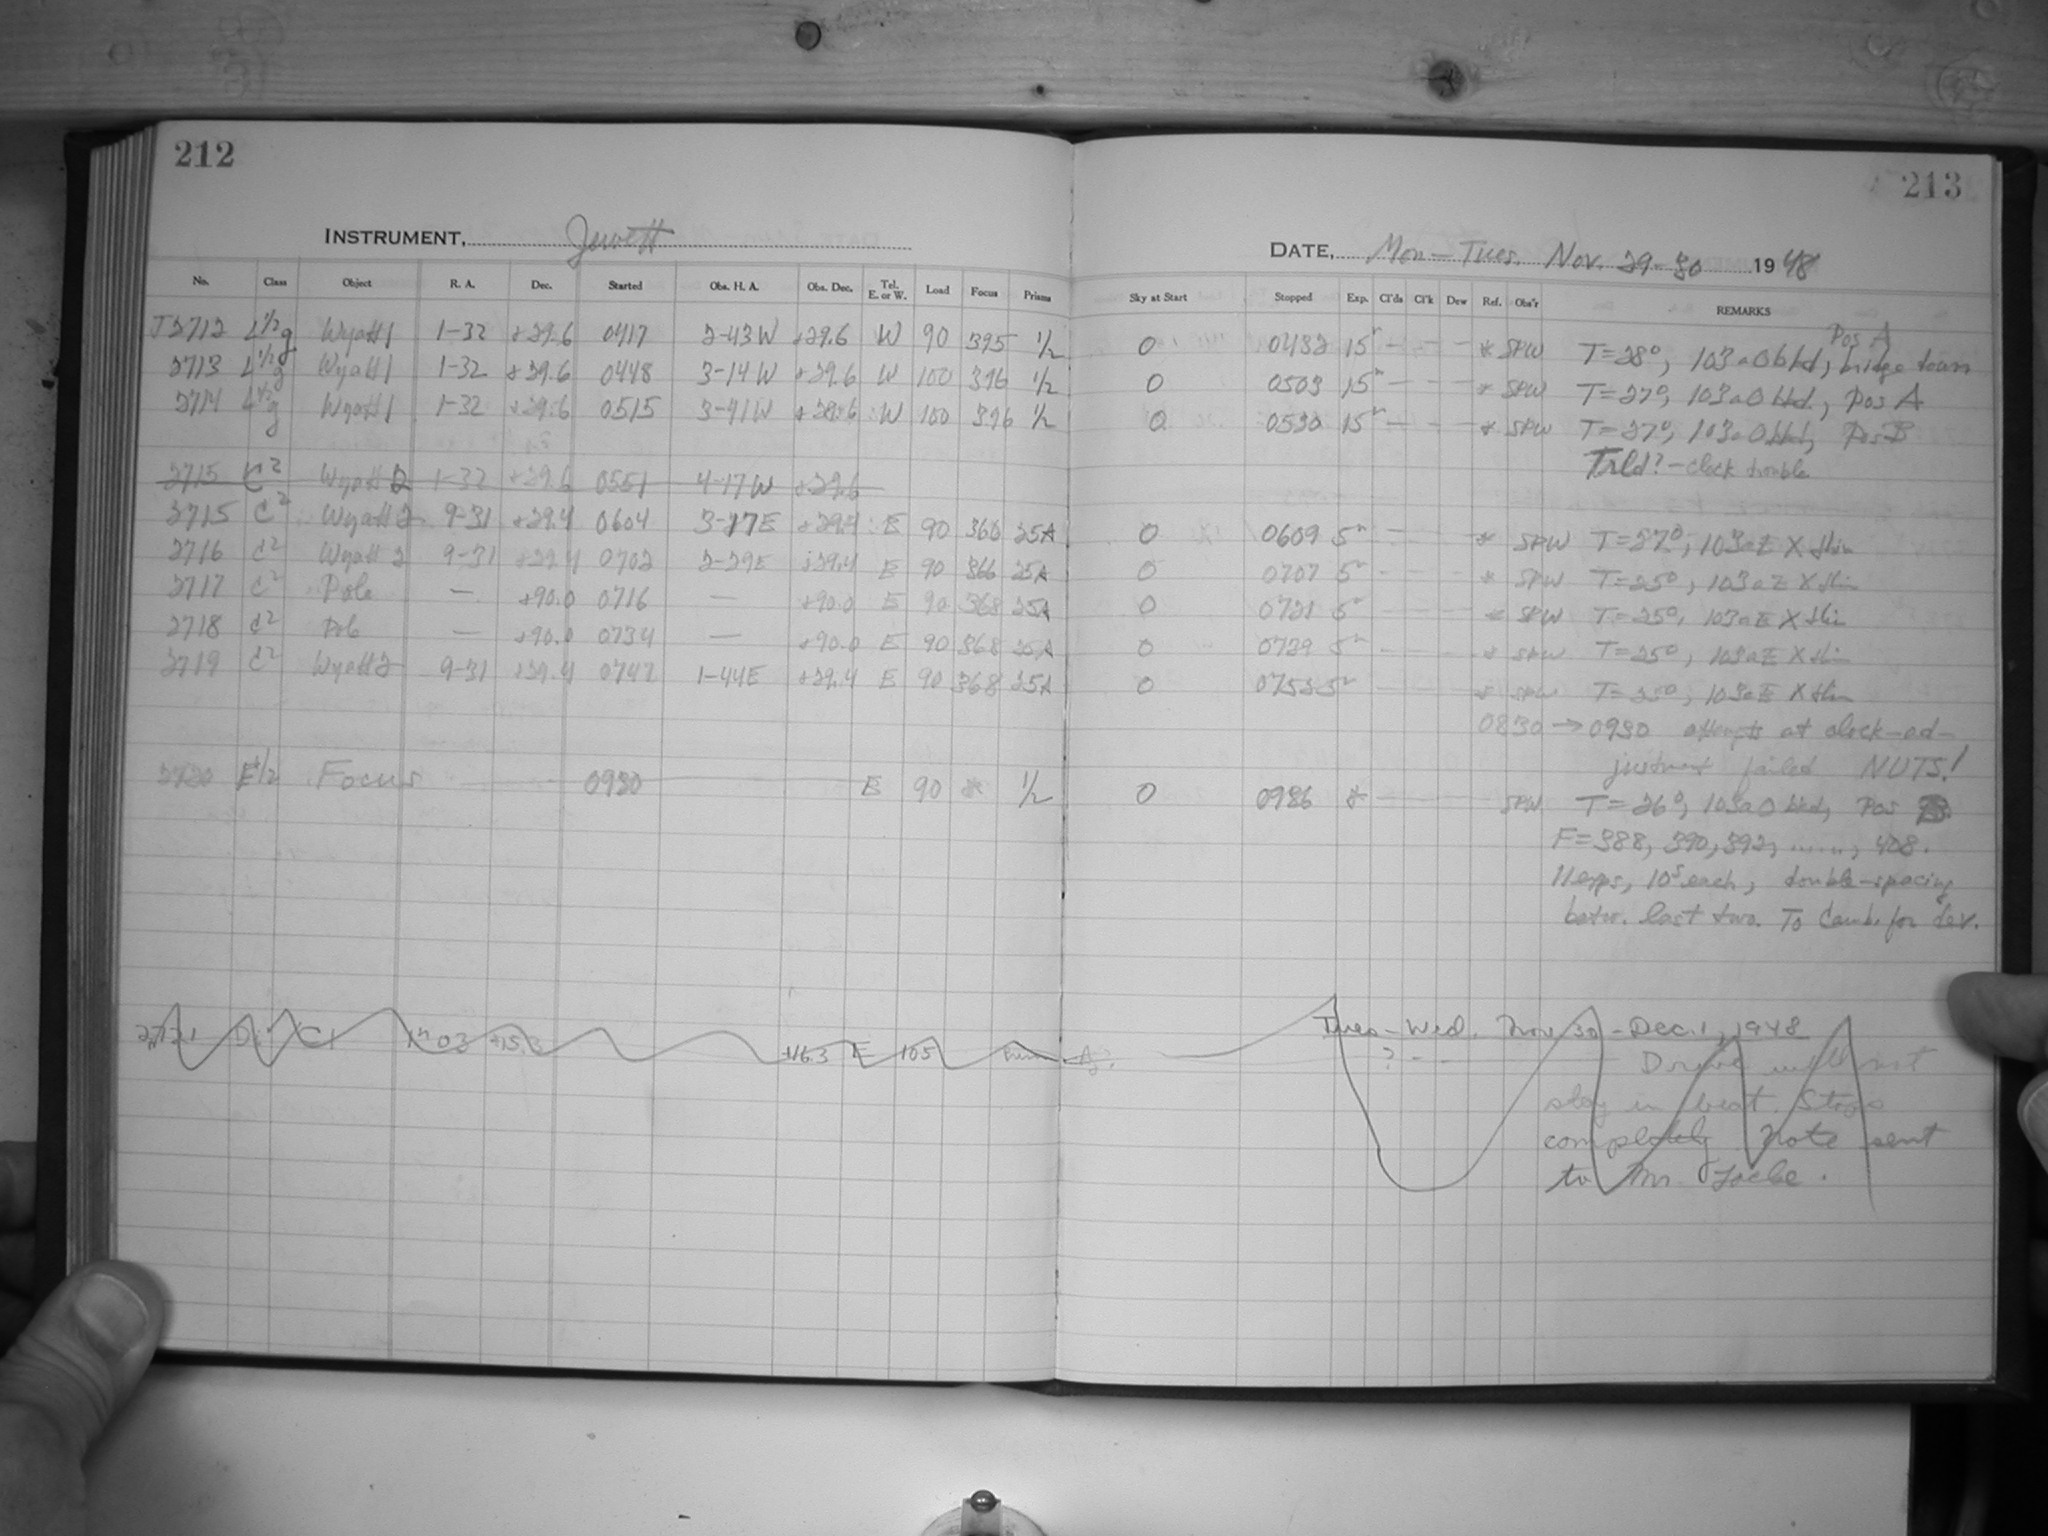 212
INSTRUMENT, Jewett
No. Class Object R. A. Dec. Started Obs. H. A. Obs. Dec. Tel. E. or W. Load Focus Prisms
J2712 L1/2g Wyatt1 1-32 +29.6 0417 2-43W +29.6 W 90 395 1/2
2713 L1/2g Wyatt1 1-32 +29.6 0448 3-14W +29.6 W 100 396 1/2
2714 L1/2g Wyatt1 1-32 +29.6 0515 3-41W +29.6 W 100 396 1/2
2715 C2 Wyatt2 1-32 +29.6 0551 4-17W +29.6
2715 C2 Wyatt2 9-31 +29.4 0604 3-27E +29.4 E 90 366 25A
2716 C2 Wyatt2 9-31 +29.4 0702 2-29E +29.4 E 90 366 25A
2717 C2 Pole — +90.0 0716 — +90.0 E 90 368 25A
2718 C2 Pole — +90.0 0734 — +90.0 E 90 368 25A
2719 C2 Wyatt2 9-31 +29.4 0747 1-44E +29.4 E 90 368 25A
2720 E1/2 Focus 0930 E 90 * 1/2
2721 C1 1h03 +15.3 +16.3 E 105
213
DATE, Mon-Tues. Nov. 29-30 1948
Sky at Start Stopped Exp. Cl'ds Cl'k Dew Ref. Obs'r REMARKS
Pos A
0 0432 15m - - - * SPW T=28°, 103aO bkd, bridge down
0 0503 15m - - - * SPW T=27°, 103aO bkd., Pos A
0 0530 15m - - - * SPW T=27°, 103aO bkd, Pos B
Trld? - clock trouble
0 0609 5m - - - * SPW T=27°, 103aE X thin
0 0707 5m - - - * SPW T=25°, 103aE X thin
0 0721 5m * SPW T=25°, 103aE X thin
0 0739 5m - - - * SPW T=25°, 103aE X thin
0 0752 5m - - - * SPW T=25°, 103aE X thin
0830 → 0930 attempts at clock-ad-
justment failed NUTS!
0 0936 * - - - SPW T=26°, 103aO bkd, Pos B
F=388, 390, 392, ....., 408.
11 exps, 10s each, double-spacing
betw. last two. To Camb. for dev.
Tues-Wed. Nov 30 - Dec. 1, 1948
? - - Drive will not
stay in beat. Stops
completely Note sent
to Mr.